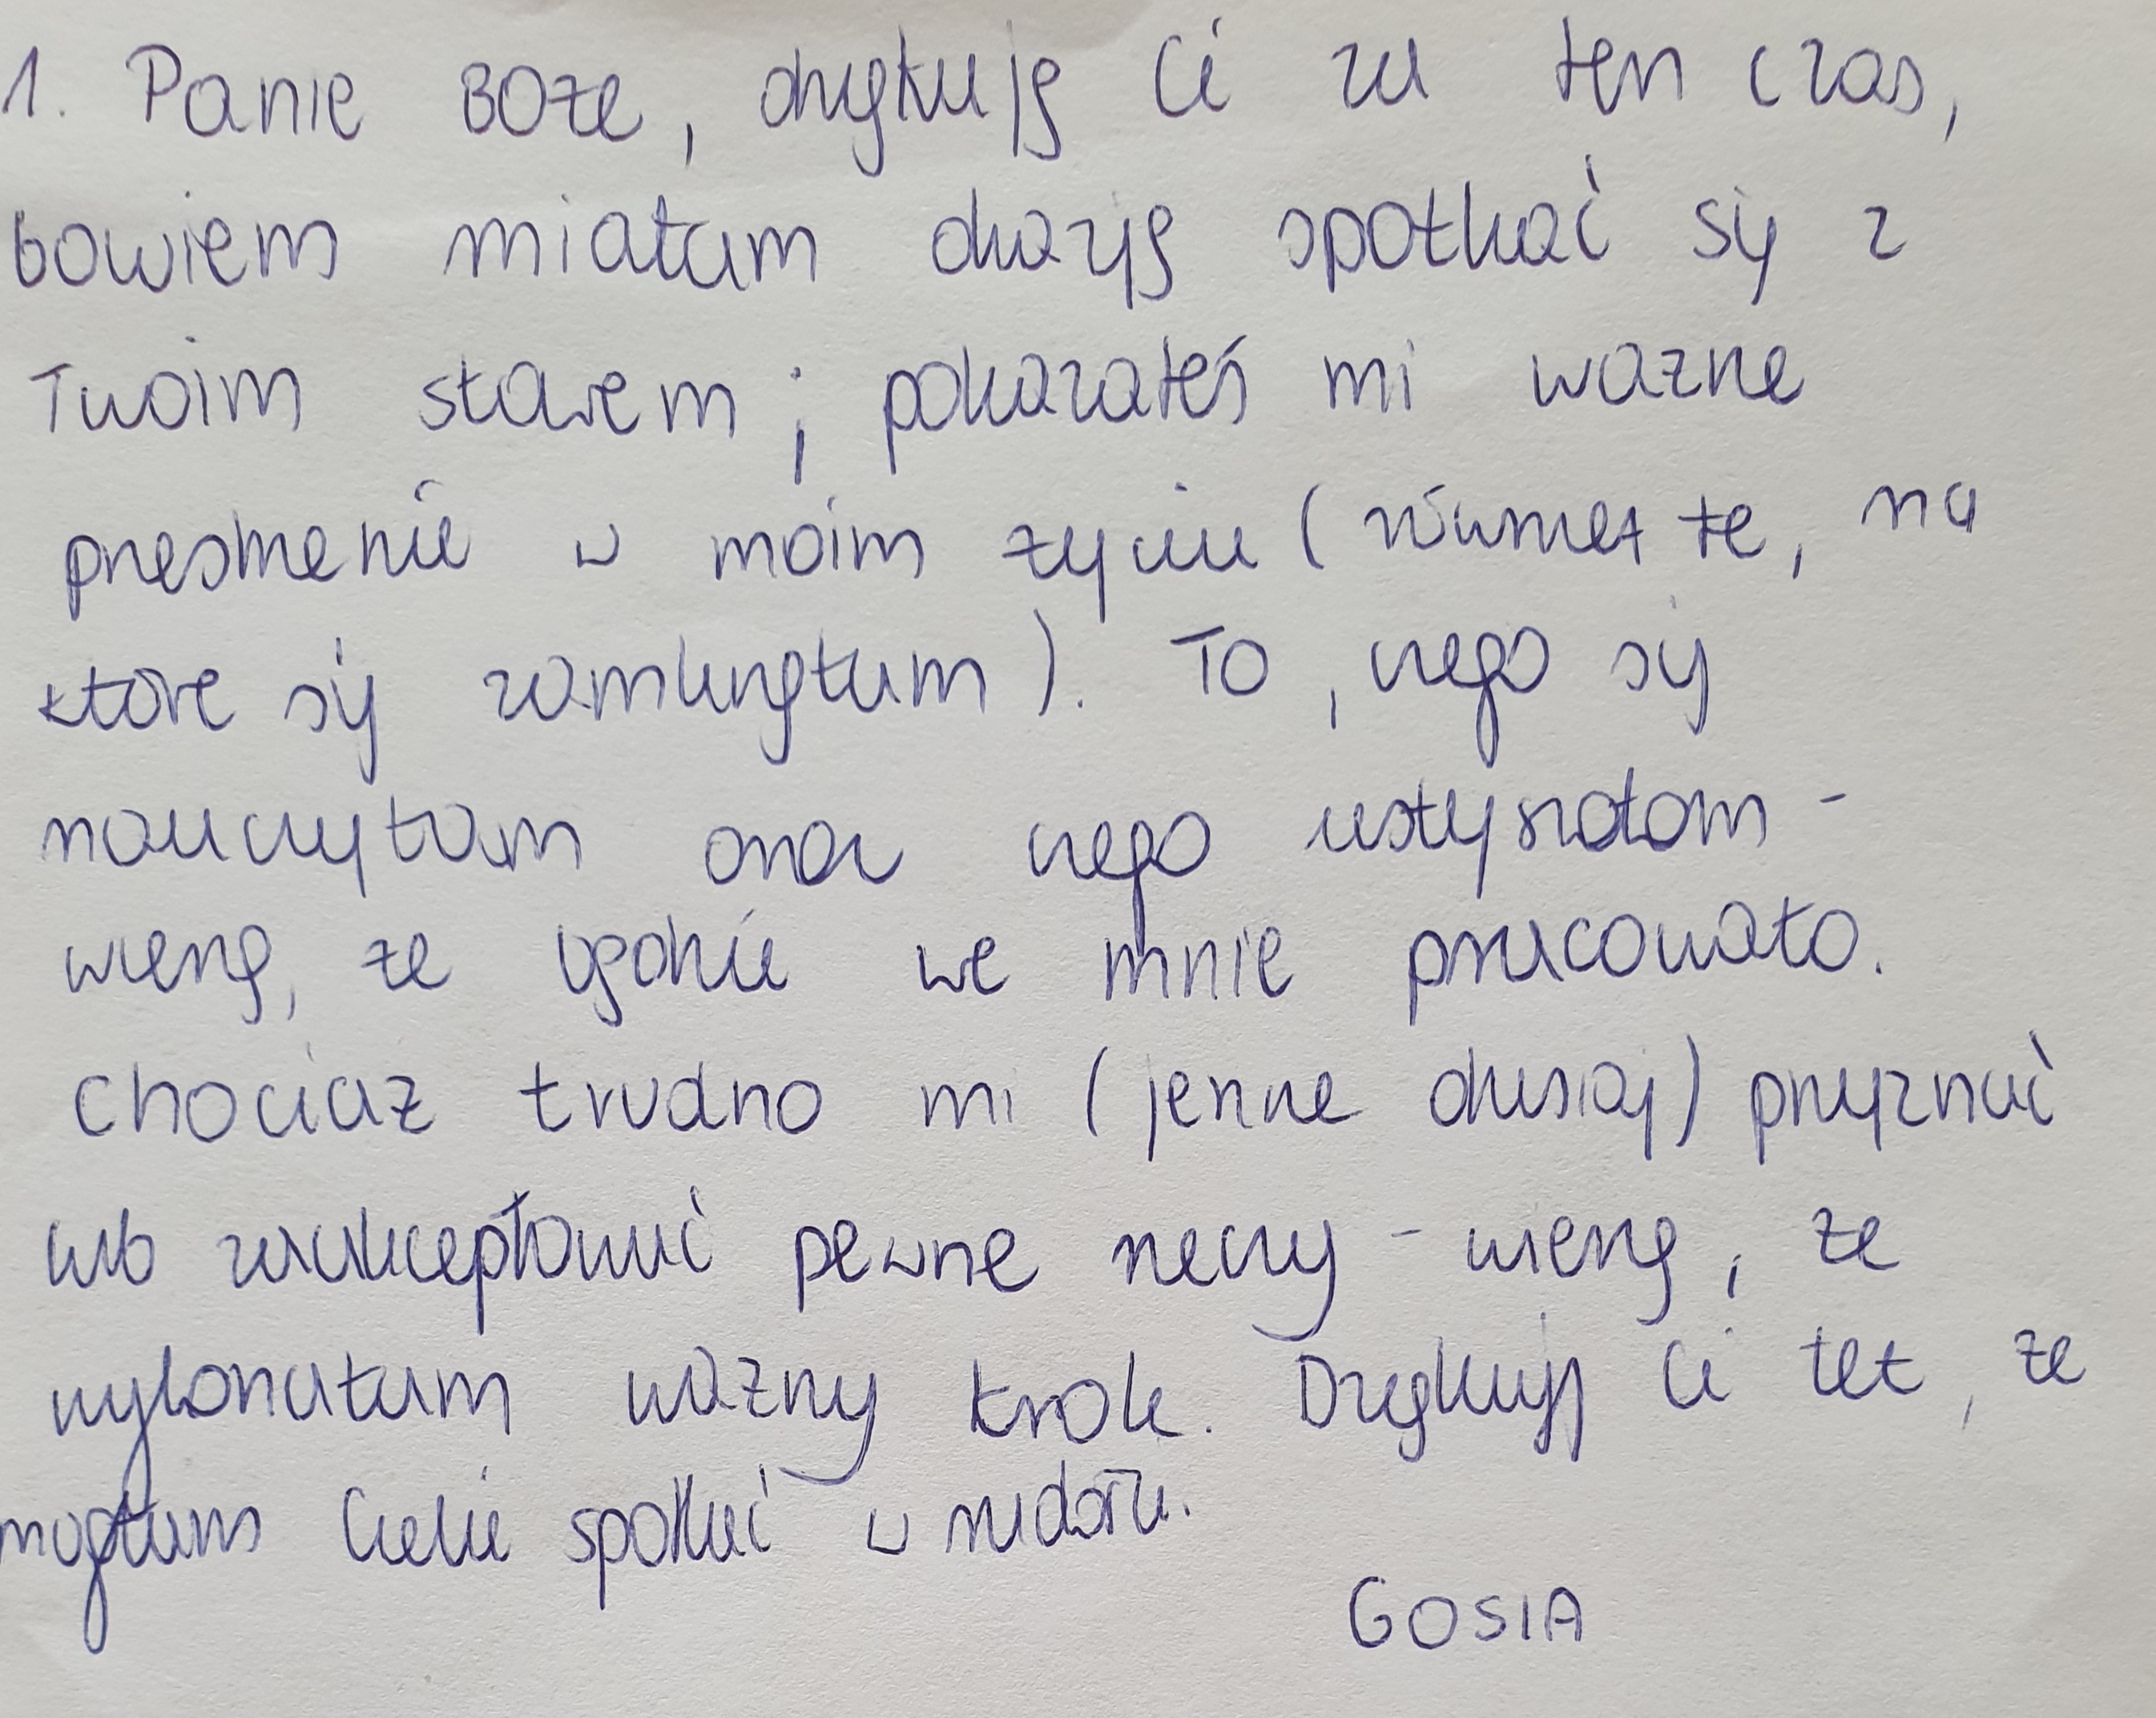 1. Panie Boże, dziękuję Ci za ten czas,
bowiem miałam okazję spotkać się z
Twoim słowem; pokazałeś mi ważne
przestrzenie w moim życiu (również te, na
które się zamknęłam). To, czego się
nauczyłam oraz czego usłyszałam -
wierzę, że będzie we mnie pracowało.
Chociaż trudno mi (jeszcze dzisiaj) przyznać
lub zaakceptować pewne rzeczy - wierzę, że
wykonałam ważny krok. Dziękuję Ci też, że
mogłam Ciebie spotkać w
GOSIA